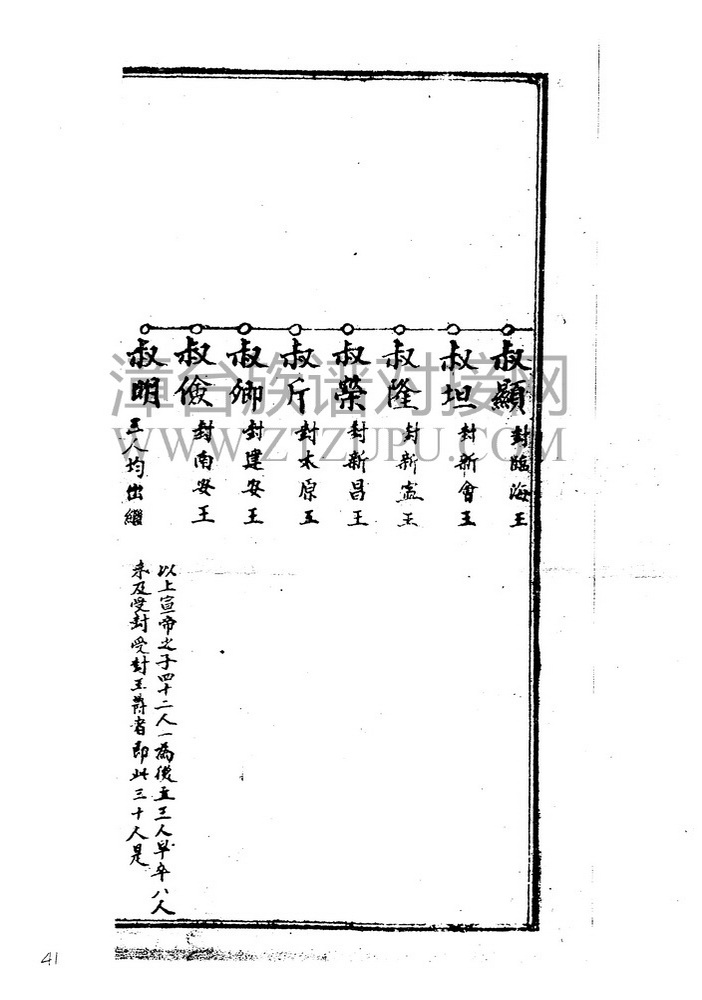 叔顯 封臨海王
叔坦 封新會王
叔隆 封新寧王
叔榮 封新昌王
叔斤 封太原王
叔卿 封建安王
叔儉 封南安王
叔明 三人均出繼
以上宣帝之子四十二人一為後主三人早卒八人
未及受封受封王爵者即此三十人是
漳台族谱对接网
WWW.ZTZUPU.COM
41